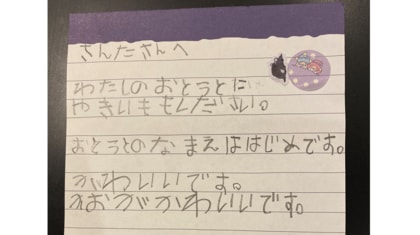 さんたさんへ
わたしのおとうとに
やきいももしださい。
おとうとのなまえははじめです。
かわいいです。
かおがかわいいです。